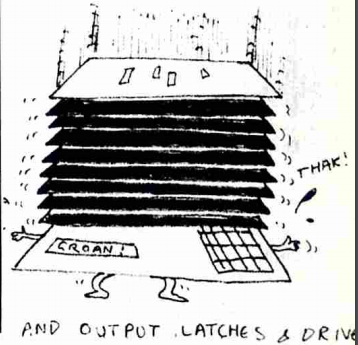 THAK!
GROAN!
AND OUTPUT LATCHES & DRIVE